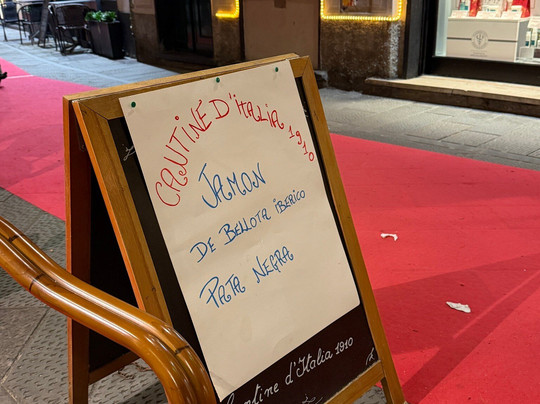 CANTINE D'ITALIA 1910
JAMON
DE BELLOTA IBERICO
PATA NEGRA
Cantine d'Italia 1910